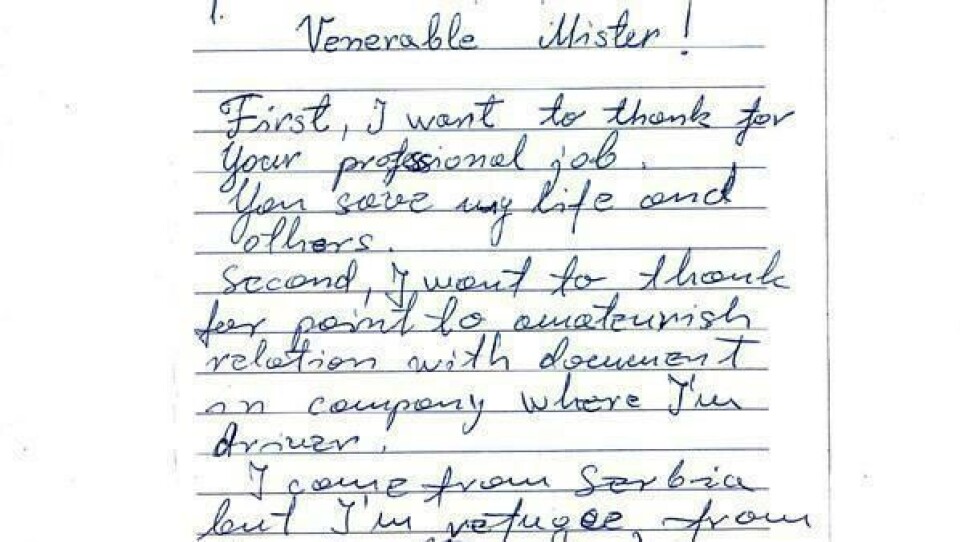 1.
Venerable Mister!
First, I want to thank for
your professional job.
You save my life and
others.
Second, I want to thank
for point to amateurish
relation with document
in company where I'm
driver.
I come from Serbia
but I'm refugee from